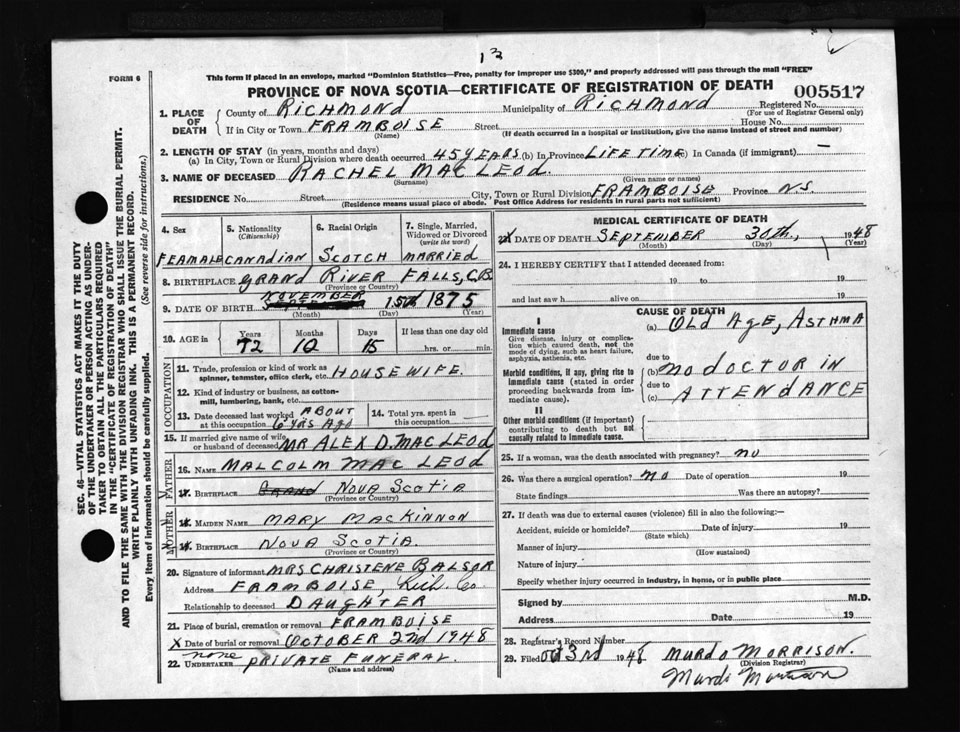 13
FORM 6
This form if placed in an envelope, marked "Dominion Statistics—Free, penalty for improper use $300," and properly addressed will pass through the mail "FREE"
PROVINCE OF NOVA SCOTIA—CERTIFICATE OF REGISTRATION OF DEATH 005517
1. PLACE OF DEATH
County of RICHMOND Municipality of RICHMOND Registered No.
(For use of Registrar General only)
If in City or Town FRAMBOISE Street House No.
(Name) (If death occurred in a hospital or institution, give the name instead of street and number)
2. LENGTH OF STAY (in years, months and days)
(a) In City, Town or Rural Division where death occurred 45 YEARS (b) In Province LIFE TIME (c) In Canada (if immigrant) —
3. NAME OF DECEASED RACHEL MAC LEOD.
(Surname) (Given name or names)
RESIDENCE No. Street City, Town or Rural Division FRAMBOISE Province N.S.
(Residence means usual place of abode. Post Office Address for residents in rural parts not sufficient)
SEC. 46—VITAL STATISTICS ACT MAKES IT THE DUTY
OF THE UNDERTAKER OR PERSON ACTING AS UNDER-
TAKER TO OBTAIN ALL THE PARTICULARS REQUIRED
IN THE "CERTIFICATE OF REGISTRATION OF DEATH"
AND TO FILE THE SAME WITH THE DIVISION REGISTRAR WHO SHALL ISSUE THE BURIAL PERMIT.
WRITE PLAINLY WITH UNFADING INK. THIS IS A PERMANENT RECORD.
Every item of information should be carefully supplied. (See reverse side for instructions.)
4. Sex 5. Nationality (Citizenship) 6. Racial Origin 7. Single, Married, Widowed or Divorced (write the word)
FEAMALE CANADIAN SCOTCH MARRIED
8. BIRTHPLACE GRAND RIVER FALLS, C.B
(Province or Country)
NOVEMBER
9. DATE OF BIRTH SEPTEMBER 15th 1875
(Month) (Day) (Year)
10. AGE in Years Months Days If less than one day old
72 10 15 hrs. or min.
OCCUPATION
11. Trade, profession or kind of work as spinner, teamster, office clerk, etc. HOUSEWIFE.
12. Kind of industry or business, as cotton-mill, lumbering, bank, etc.
13. Date deceased last worked at this occupation ABOUT 6 YRS AGO
14. Total yrs. spent in this occupation
15. If married give name of wife or husband of deceased MR ALEX D. MAC LEOD
FATHER
16. NAME MALCOLM MAC LEOD
17. BIRTHPLACE GRAND NOVA SCOTIA
(Province or Country)
MOTHER
18. MAIDEN NAME MARY MACKINNON
19. BIRTHPLACE NOVA SCOTIA.
(Province or Country)
20. Signature of informant MRS CHRISTENE BALSOR
Address FRAMBOISE, Rich. Co
Relationship to deceased DAUGHTER
21. Place of burial, cremation or removal FRAMBOISE
X Date of burial or removal OCTOBER 2nd 1948
none
22. UNDERTAKER PRIVATE FUNERAL.
(Name and address)
MEDICAL CERTIFICATE OF DEATH
DATE OF DEATH SEPTEMBER 30th, 1948
(Month) (Day) (Year)
24. I HEREBY CERTIFY that I attended deceased from:
19 to 19
and last saw h alive on 19
CAUSE OF DEATH
I
Immediate cause
Give disease, injury or complication which caused death, not the mode of dying, such as heart failure, asphyxia, asthenia, etc.
(a) OLD AGE, ASTHMA
due to
Morbid conditions, if any, giving rise to immediate cause (stated in order proceeding backwards from immediate cause).
(b) NO DOCTOR IN
due to
(c) ATTENDANCE
II
Other morbid conditions (if important) contributing to death but not causally related to immediate cause.
25. If a woman, was the death associated with pregnancy? NO
26. Was there a surgical operation? NO Date of operation 19
State findings Was there an autopsy?
27. If death was due to external causes (violence) fill in also the following:—
Accident, suicide or homicide? Date of injury 19
(State which)
Manner of injury
(How sustained)
Nature of injury
Specify whether injury occurred in industry, in home, or in public place
Signed by M.D.
Address Date 19
28. Registrar's Record Number
29. Filed Oct 3rd 1948 MURDO MORRISON.
(Division Registrar)
Murdo Morrison